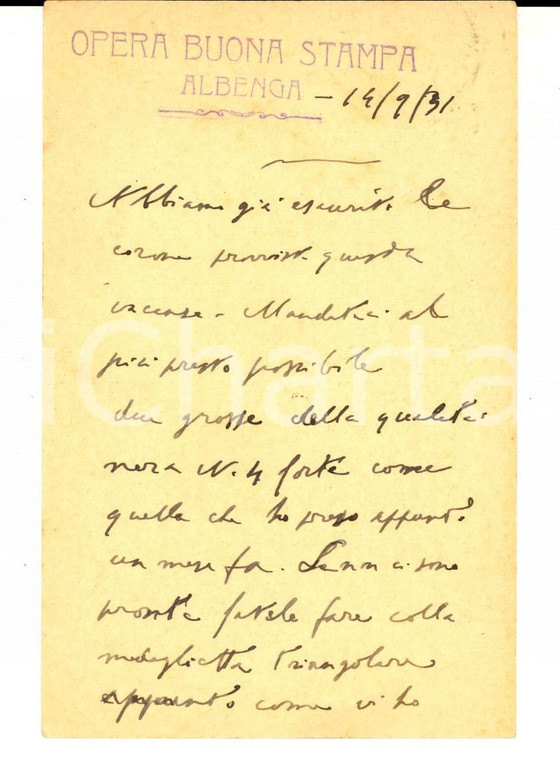 OPERA BUONA STAMPA
ALBENGA
- 14/9/31
Abbiamo già esaurito le
corone
Mandateci al
più presto possibile
due grosse della qualità
nera N. 4 forte come
quella che ho preso appunto
un mese fa. Se non ci sono
pronte fatele fare colla
medaglietta triangolare
appunto come vi ho
iCharta